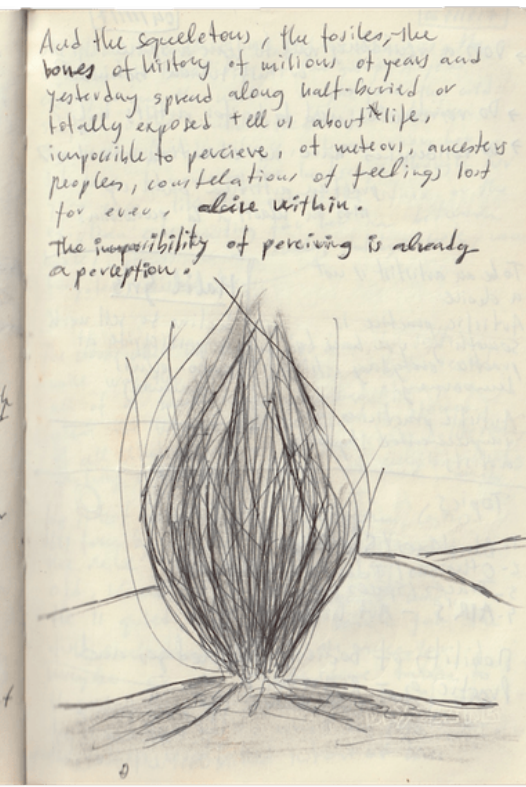 And the squeletons, the fosiles, the
bones of history of milions of years and
yesterday spread along half-buried or
totally exposed tell us about life,
impossible to percieve, of meteors, ancesters
peoples, constelations of feelings lost
for ever, alive within.
The imposibility of perceiving is already
a perception.